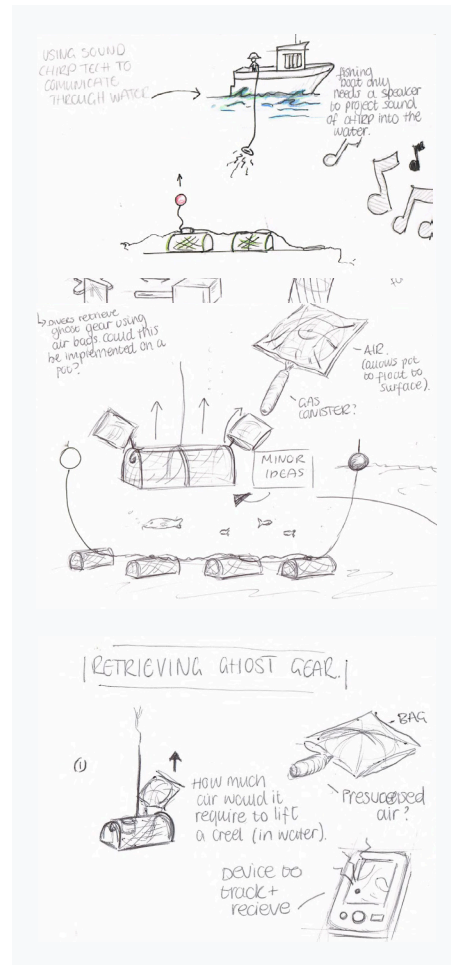 USING SOUND
CHIRP TECH TO
COMUNICATE
THROUGH WATER
fishing
boat only
needs a speaker
to project sound
of CHIRP into the
water.
↳ Divers retrieve
ghost gear using
air bags. could this
be implemented on a
pot?
AIR.
(allows pot
to float to
surface).
GAS
CANISTER?
MINOR
IDEAS
RETRIEVING GHOST GEAR.
①
HOW much
air would it
require to lift
a creel (in water).
BAG
Presurised
air?
Device to
track +
recieve